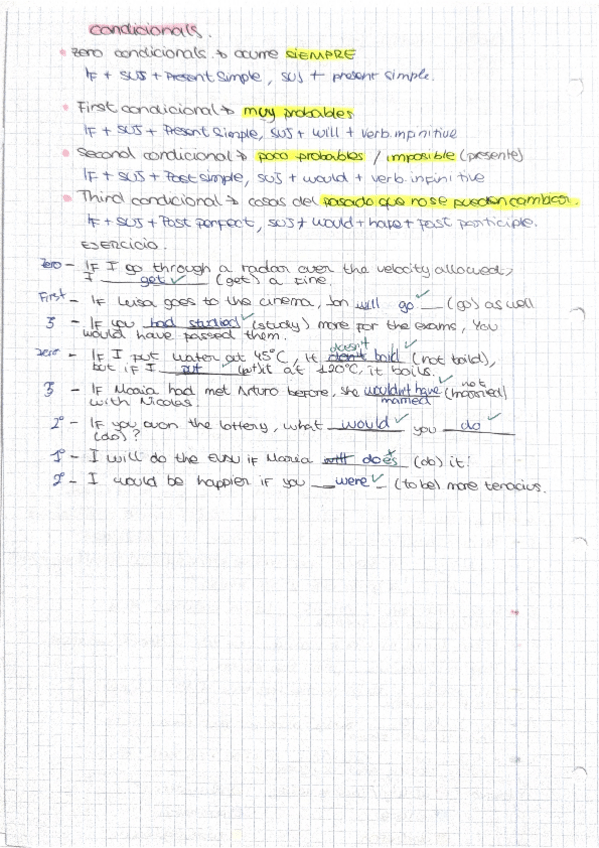 condicionals.
• Zero condicionals → ocurre SIEMPRE
IF + SUJ + Present Simple, SUJ + present simple.
• First condicional → muy probables
IF + SUJ + Present Simple, SUJ + will + verb. infinitive
• Second condicional → poco probables / imposible (presente)
IF + SUJ + Past simple, SUJ + would + verb. infinitive
• Third condicional → cosas del pasado que no se pueden cambiar.
IF + SUJ + Past perfect, SUJ + would + have + past participle.
EJERCICIO.
Zero - IF I go through a radar over the velocity allowed,
I get ✓ (get) a fine.
First - IF Luisa goes to the cinema, Jon will go ✓ (go) as well
3 - IF you had studied ✓ (study) more for the exams, you
would have passed them.
doesn't
zero - IF I put water at 45°C, it don't boild ✓ (not boild),
but if I put ✓ (put) it at 120°C, it boils.
3 - IF Maria had met Arturo before, she wouldn't have ✓ (not married)
married
with Nicolas.
2º - IF you won the lottery, what would ✓ you do ✓
(do)?
1º - I will do the if Maria will does (do) it.
2º - I would be happier if you were ✓ (to be) more tenacius.